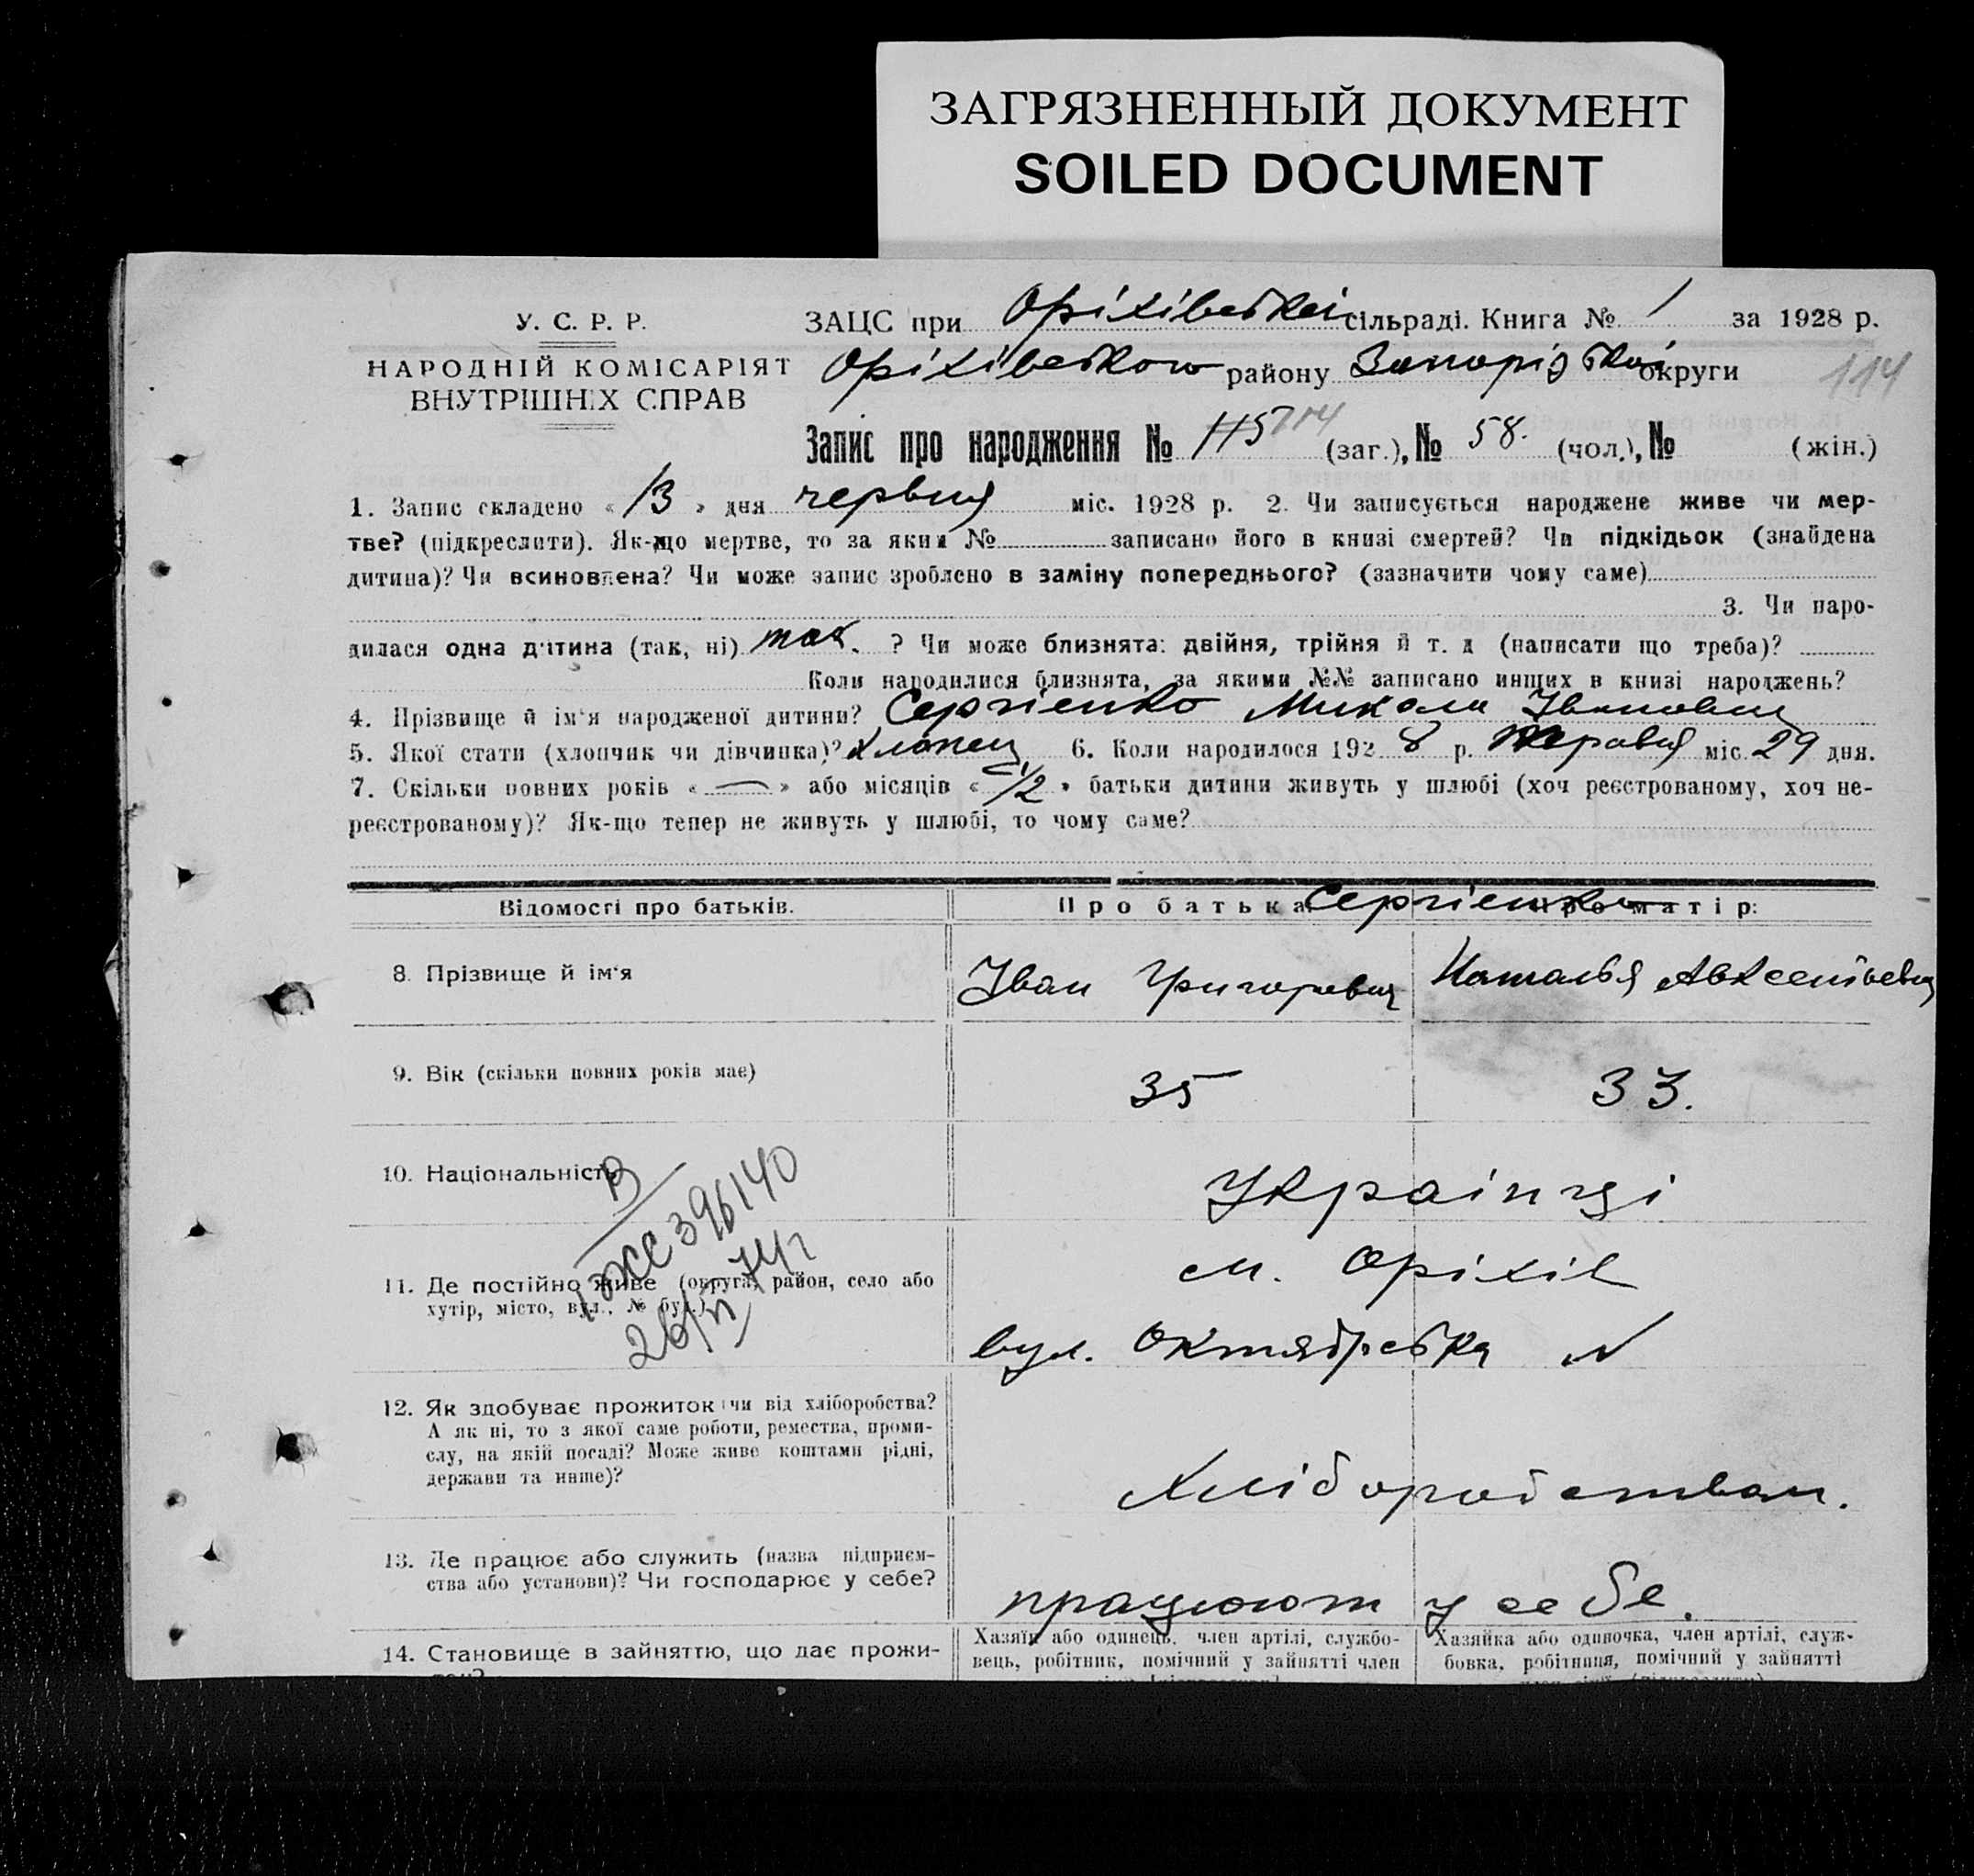 ЗАГРЯЗНЕННЫЙ ДОКУМЕНТ
SOILED DOCUMENT
У. С. Р. Р.
НАРОДНІЙ КОМІСАРІЯТ
ВНУТРІШНІХ СПРАВ
ЗАЦС при Оріхівській сільраді. Книга № 1 за 1928 р.
Оріхівського району Запорізької округи
114
Запис про народження № 115 114 (заг.), № 58. (чол.), № (жін.)
1. Запис складено «13» дня червня міс. 1928 р. 2. Чи записується народжене живе чи мер-
тве? (підкреслити). Як-що мертве, то за яким № записано його в книзі смертей? Чи підкідьок (знайдена
дитина)? Чи всиновлена? Чи може запис зроблено в заміну попереднього? (зазначити чому саме)
3. Чи наро-
дилася одна дитина (так, ні) так. ? Чи може близнята: двійня, трійня й т. д (написати що треба)?
Коли народилися близнята, за якими №№ записано инших в книзі народжень?
4. Прізвище й ім'я народженої дитини? Сергієнко Микола Іванович
5. Якої стати (хлопчик чи дівчинка)? Хлопец 6. Коли народилося 1928 р. міс. 29 дня.
7. Скільки повних років « — » або місяців « 1/2 » батьки дитини живуть у шлюбі (хоч реєстрованому, хоч не-
реєстрованому)? Як-що тепер не живуть у шлюбі, то чому саме?
Відомості про батьків. Про батька: Сергієнко Про матір:
8. Прізвище й ім'я Іван Григорович Наталья Авксентьевна
9. Вік (скільки повних років має) 35 33.
10. Національність Українці
В
1 ЖС 396140
26/ 74г
11. Де постійно живе (округа, район, село або
хутір, місто, вул., № буд.) м. Оріхів
вул. Октябрська №
12. Як здобуває прожиток чи від хліборобства?
А як ні, то з якої саме роботи, ремества, проми-
слу, на якій посаді? Може живе коштами рідні,
держави та инше)? Хліборобством.
13. Де працює або служить (назва підприєм-
ства або установи)? Чи господарює у себе? працюют у себе.
14. Становище в зайняттю, що дає прожи-
Хазяїн або одинець, член артілі, службо-
вець, робітник, помічний у зайнятті член
Хазяйка або одиночка, член артілі, служ-
бовка, робітниця, помічний у зайнятті